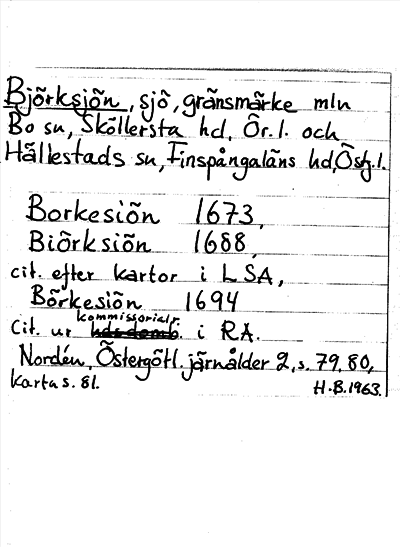 Björksjön, sjö, gränsmärke mln
Bo sn, Sköllersta hd, Ör. l. och
Hällestads sn, Finspångaläns hd, Östg. l.
Borkesiön 1673,
Biörksiön 1688,
cit. efter kartor i LSA,
Börkesiön 1694
kommissorialr.
Cit. ur i RA.
Nordén, Östergötl. järnålder 2, s. 79, 80,
karta s. 81.
H.B. 1963.